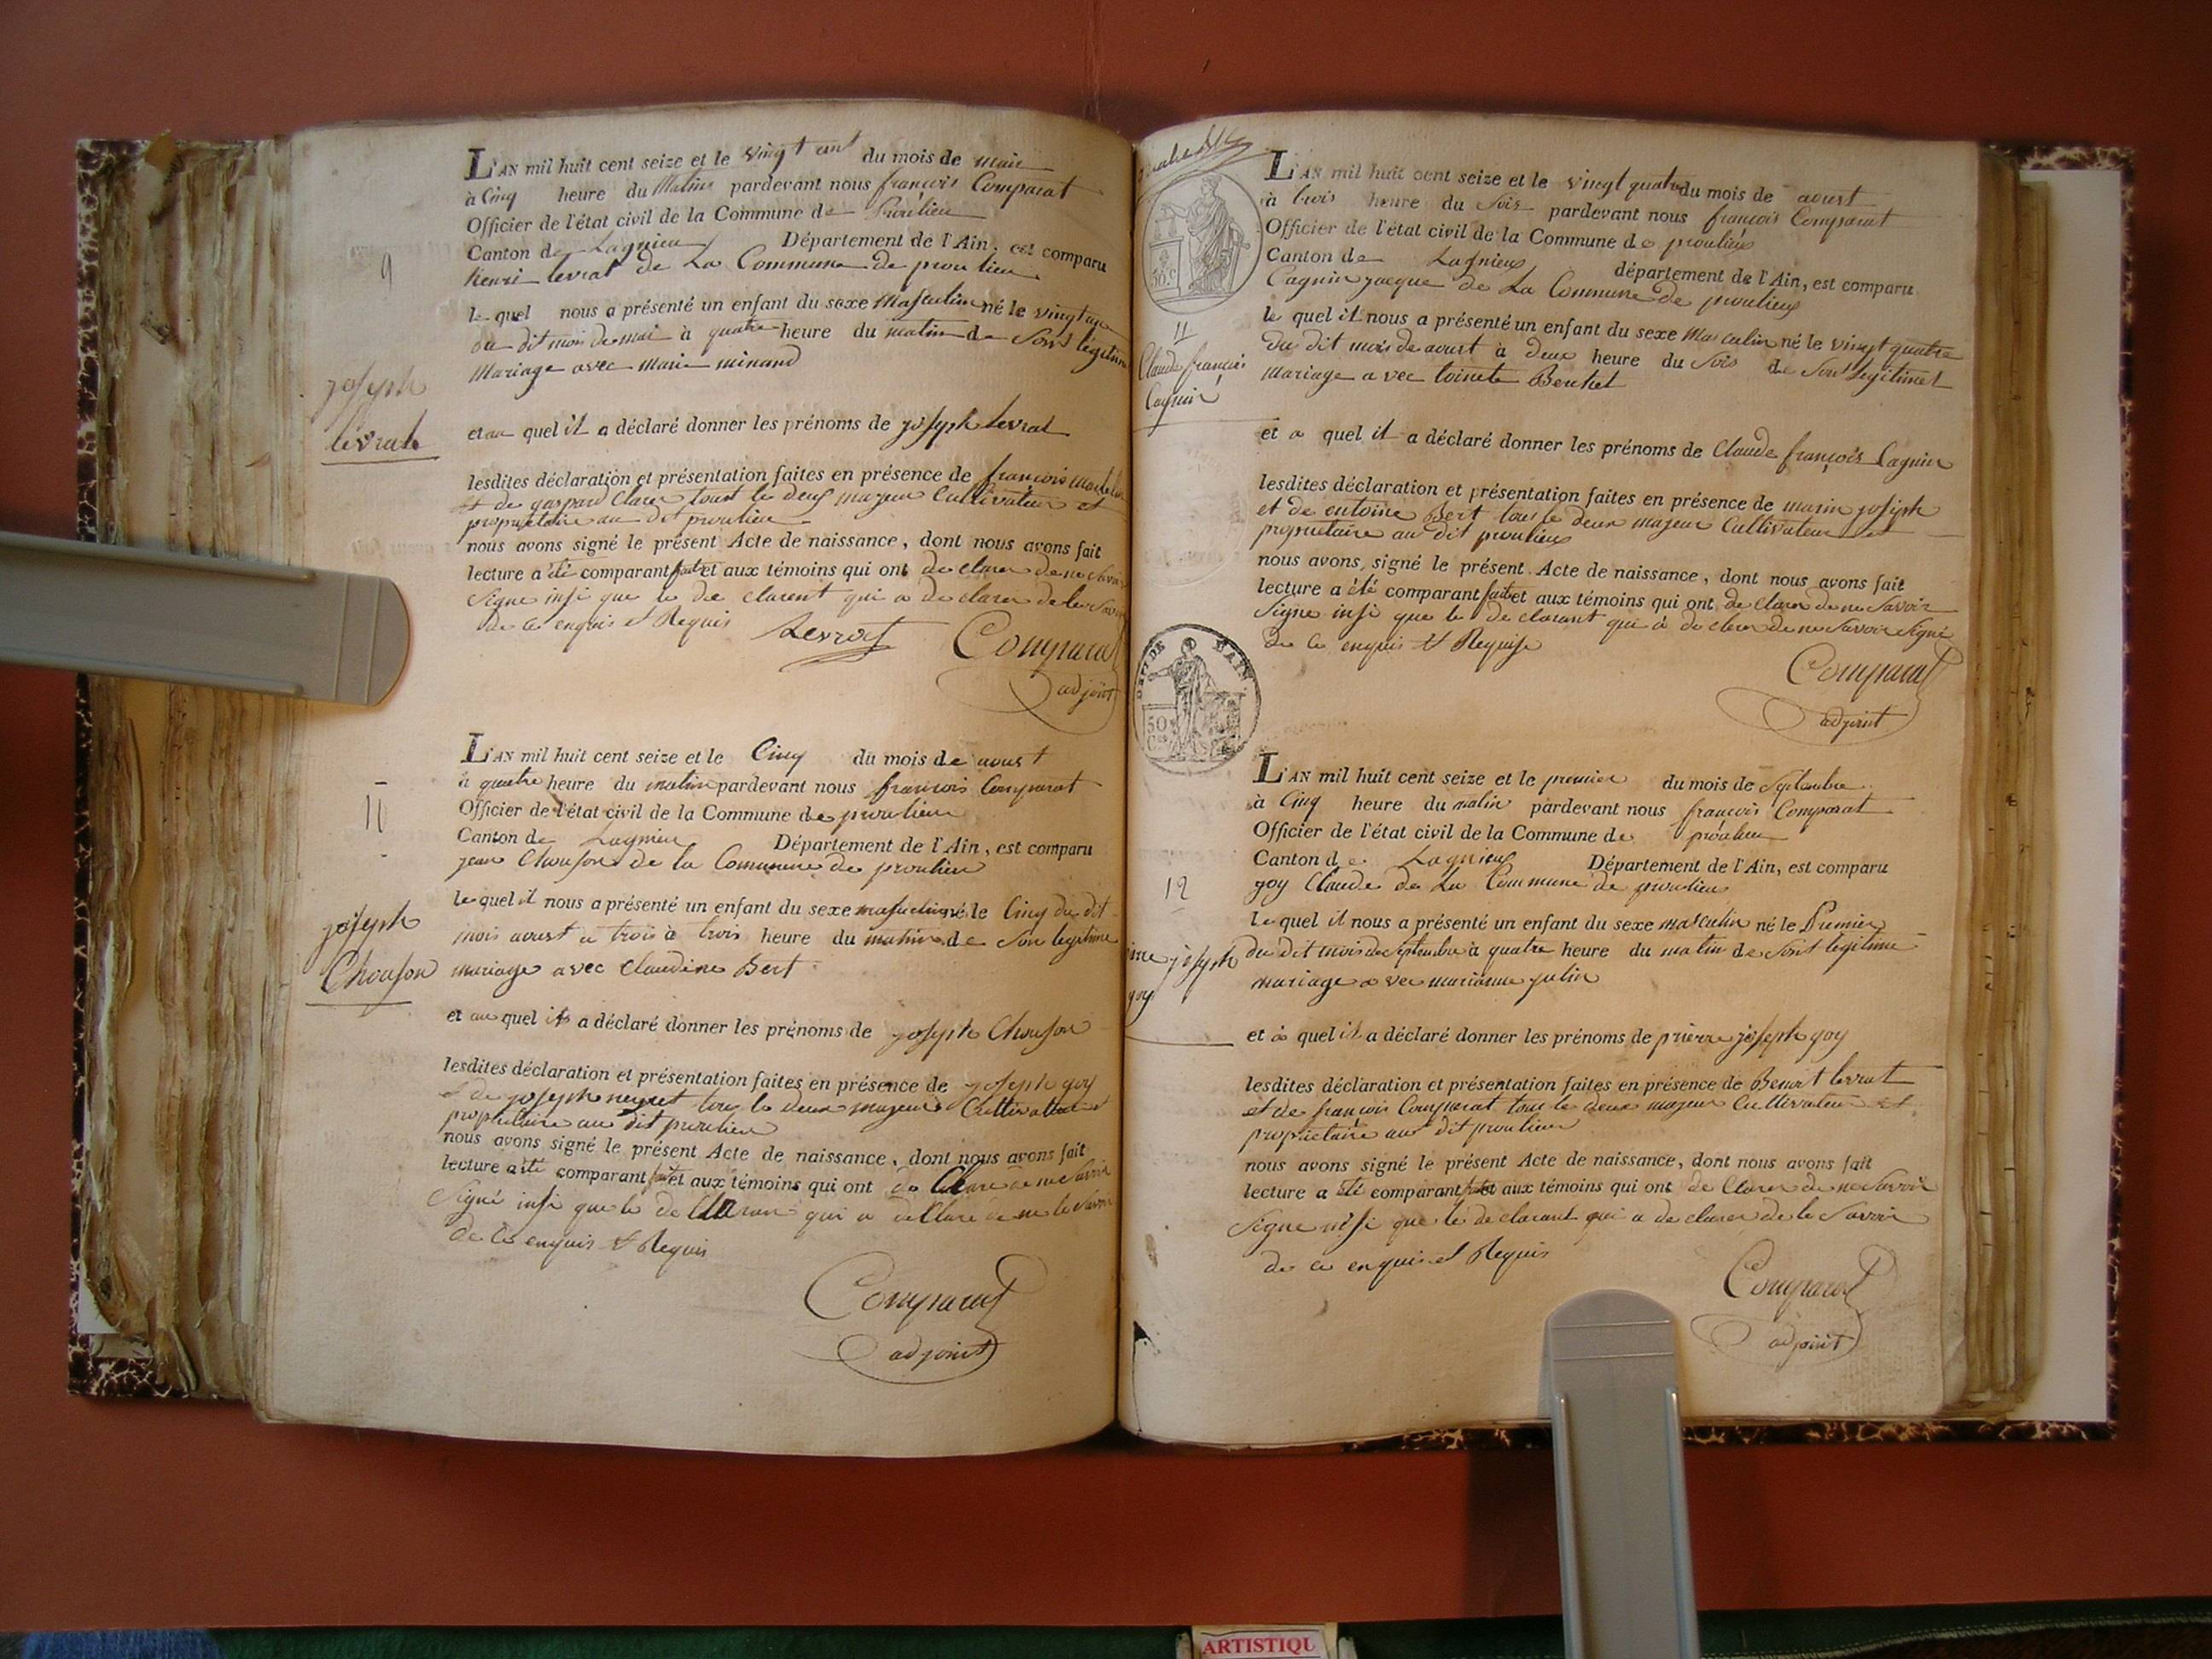 9
joseph
levrat
L'AN mil huit cent seize et le vingt un du mois de mai
à Cinq heure du Matin pardevant nous françois Comparat
Officier de l'état civil de la Commune de Proulieu
Canton de Lagnieu Département de l'Ain, est comparu
henri levrat de La Commune de proulieu
le quel nous a présenté un enfant du sexe Masculin né le vingt un
du dit mois de mai à quatre heure du matin de Sont légitime
Mariage avec Marie minand
et au quel il a déclaré donner les prénoms de joseph Levrat
lesdites déclaration et présentation faites en présence de françois
et de gaspard Claer tout le deux majeur Cultivateur et
propriétaire au dit proulieu
nous avons signé le présent Acte de naissance, dont nous avons fait
lecture a été comparant fait et aux témoins qui ont de clarer de ne Savoir
Signe insi que le de clarent qui a de clarer de le Savoir
de ce enquis et Requis Levrat Comparat
adjoint
11
joseph
Chouson
L'AN mil huit cent seize et le Cinq du mois de avust
à quatre heure du matin pardevant nous françois Comparat
Officier de l'état civil de la Commune de proulieu
Canton de Lagnieu Département de l'Ain, est comparu
jean Chouson de la Commune de proulieu
le quel il nous a présenté un enfant du sexe masculin né le Cinq du dit
mois avust a trois à trois heure du matin de Son legitime
mariage avec Claudine Bert
et au quel il a déclaré donner les prénoms de joseph Chouson
lesdites déclaration et présentation faites en présence de joseph goy
et de joseph neyret tous le deux majeur Cultivateur et
propriétaire au dit proulieu
nous avons signé le présent Acte de naissance, dont nous avons fait
lecture a été comparant fait et aux témoins qui ont de Clare de ne Savoir
Signé insi que le de Claran qui a de Clare de ne le Savoir
de ce enquis et Requis
Comparat
adjoint
50 c.
11
Claude françois
Cagnin
L'AN mil huit cent seize et le vingt quatre du mois de avust
à trois heure du Soir pardevant nous françois Comparat
Officier de l'état civil de la Commune de proulieu
Canton de Lagnieu département de l'Ain, est comparu
Cagnin jacque de La Commune de proulieu
le quel il nous a présenté un enfant du sexe Masculin né le vingt quatre
du dit mois de avust à deux heure du Soir de Sont legitimet
mariage avec toinete Benhet
et a quel il a déclaré donner les prénoms de Claude françois Cagnin
lesdites déclaration et présentation faites en présence de marin joseph
et de entoine Bert tous le deux majeur Cultivateur et
propriétaire au dit proulieu
nous avons signé le présent Acte de naissance, dont nous avons fait
lecture a été comparant fait et aux témoins qui ont de clarer de ne Savoir
Signe insi que le de clarant qui a de clarer de ne Savoir Signé
de ce enquis et Requise
Comparat
adjoint
DEPT. DE L'AIN
50 Ces
12
joseph
goy
L'AN mil huit cent seize et le premier du mois de Septembre
à Cinq heure du matin pardevant nous françois Comparat
Officier de l'état civil de la Commune de proulieu
Canton de Lagnieu Département de l'Ain, est comparu
goy Claude de La Commune de proulieu
le quel il nous a présenté un enfant du sexe masculin né le Premier
du dit mois de Septembre à quatre heure du matin de Sont legitime
mariage avec marianne julin
et à quel il a déclaré donner les prénoms de prierre joseph goy
lesdites déclaration et présentation faites en présence de Benoit levrat
et de françois Comparat tous le deux majeur Cultivateur et
propriétaire au dit proulieu
nous avons signé le présent Acte de naissance, dont nous avons fait
lecture a été comparant fait et aux témoins qui ont de Clarer de ne Savoir
Signe insi que le de clarant qui a de clarer de le Savoir
de ce enquis et Requis
Comparat
adjoint
ARTISTIQU